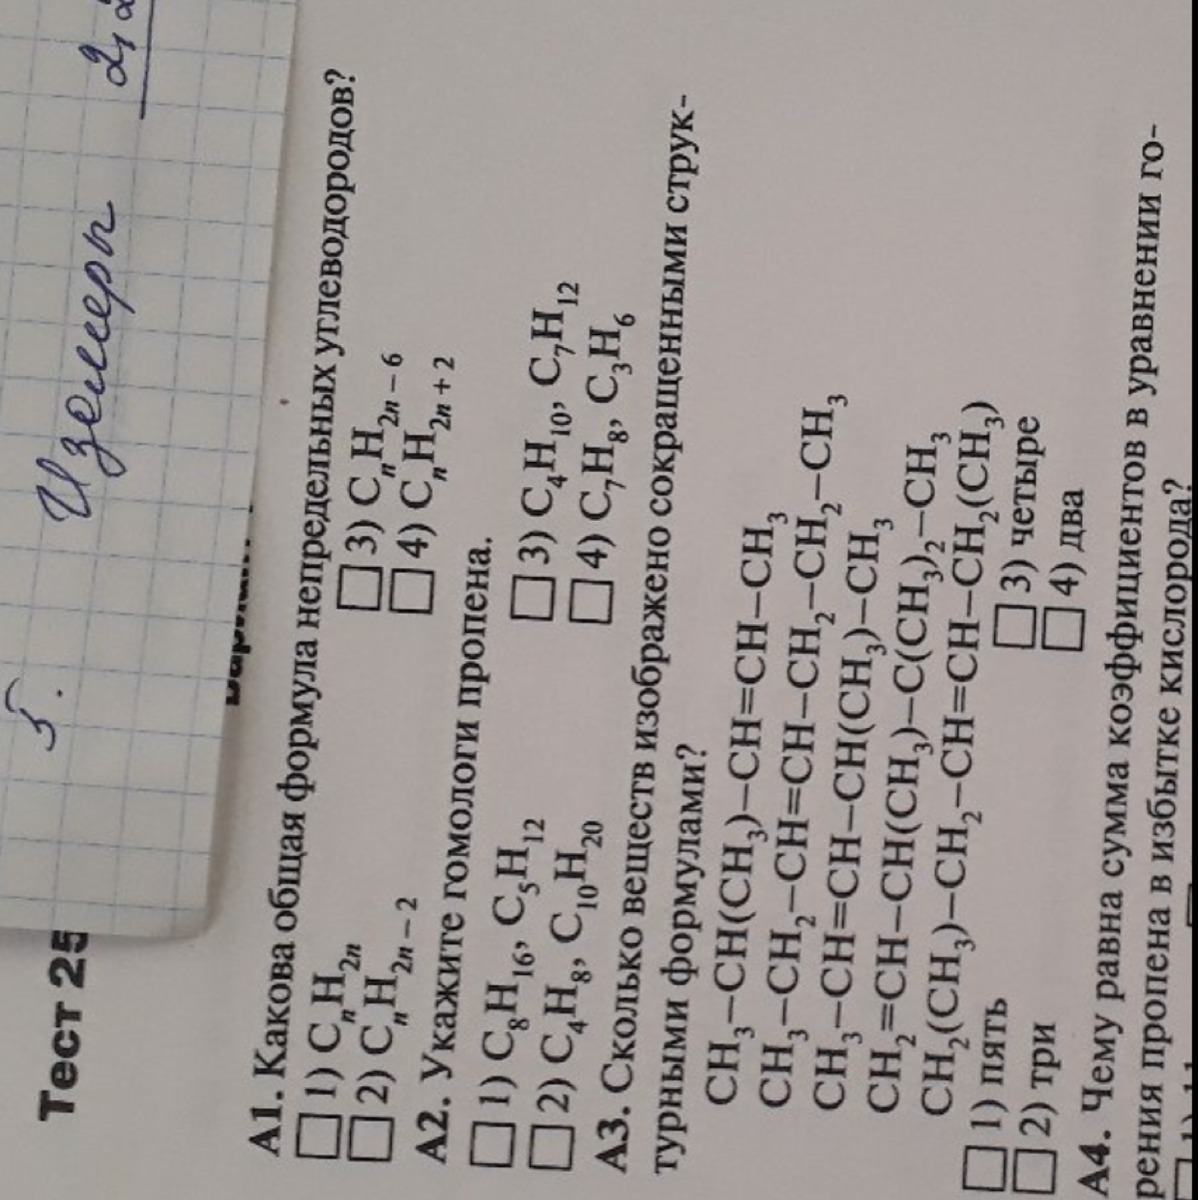 5. Изомеры 2,2
Тест 25
А1. Какова общая формула непредельных углеводородов?
1) CₙH₂ₙ 3) CₙH₂ₙ₋₆
2) CₙH₂ₙ₋₂ 4) CₙH₂ₙ₊₂
А2. Укажите гомологи пропена.
1) C₈H₁₆, C₅H₁₂ 3) C₄H₁₀, C₇H₁₂
2) C₄H₈, C₁₀H₂₀ 4) C₇H₈, C₃H₆
А3. Сколько веществ изображено сокращенными струк-
турными формулами?
CH₃–CH(CH₃)–CH=CH–CH₃
CH₃–CH₂–CH=CH–CH₂–CH₂–CH₃
CH₃–CH=CH–CH(CH₃)–CH₃
CH₂=CH–CH(CH₃)–C(CH₃)₂–CH₃
CH₂(CH₃)–CH₂–CH=CH–CH₂(CH₃)
1) пять 3) четыре
2) три 4) два
А4. Чему равна сумма коэффициентов в уравнении го-
рения пропена в избытке кислорода?